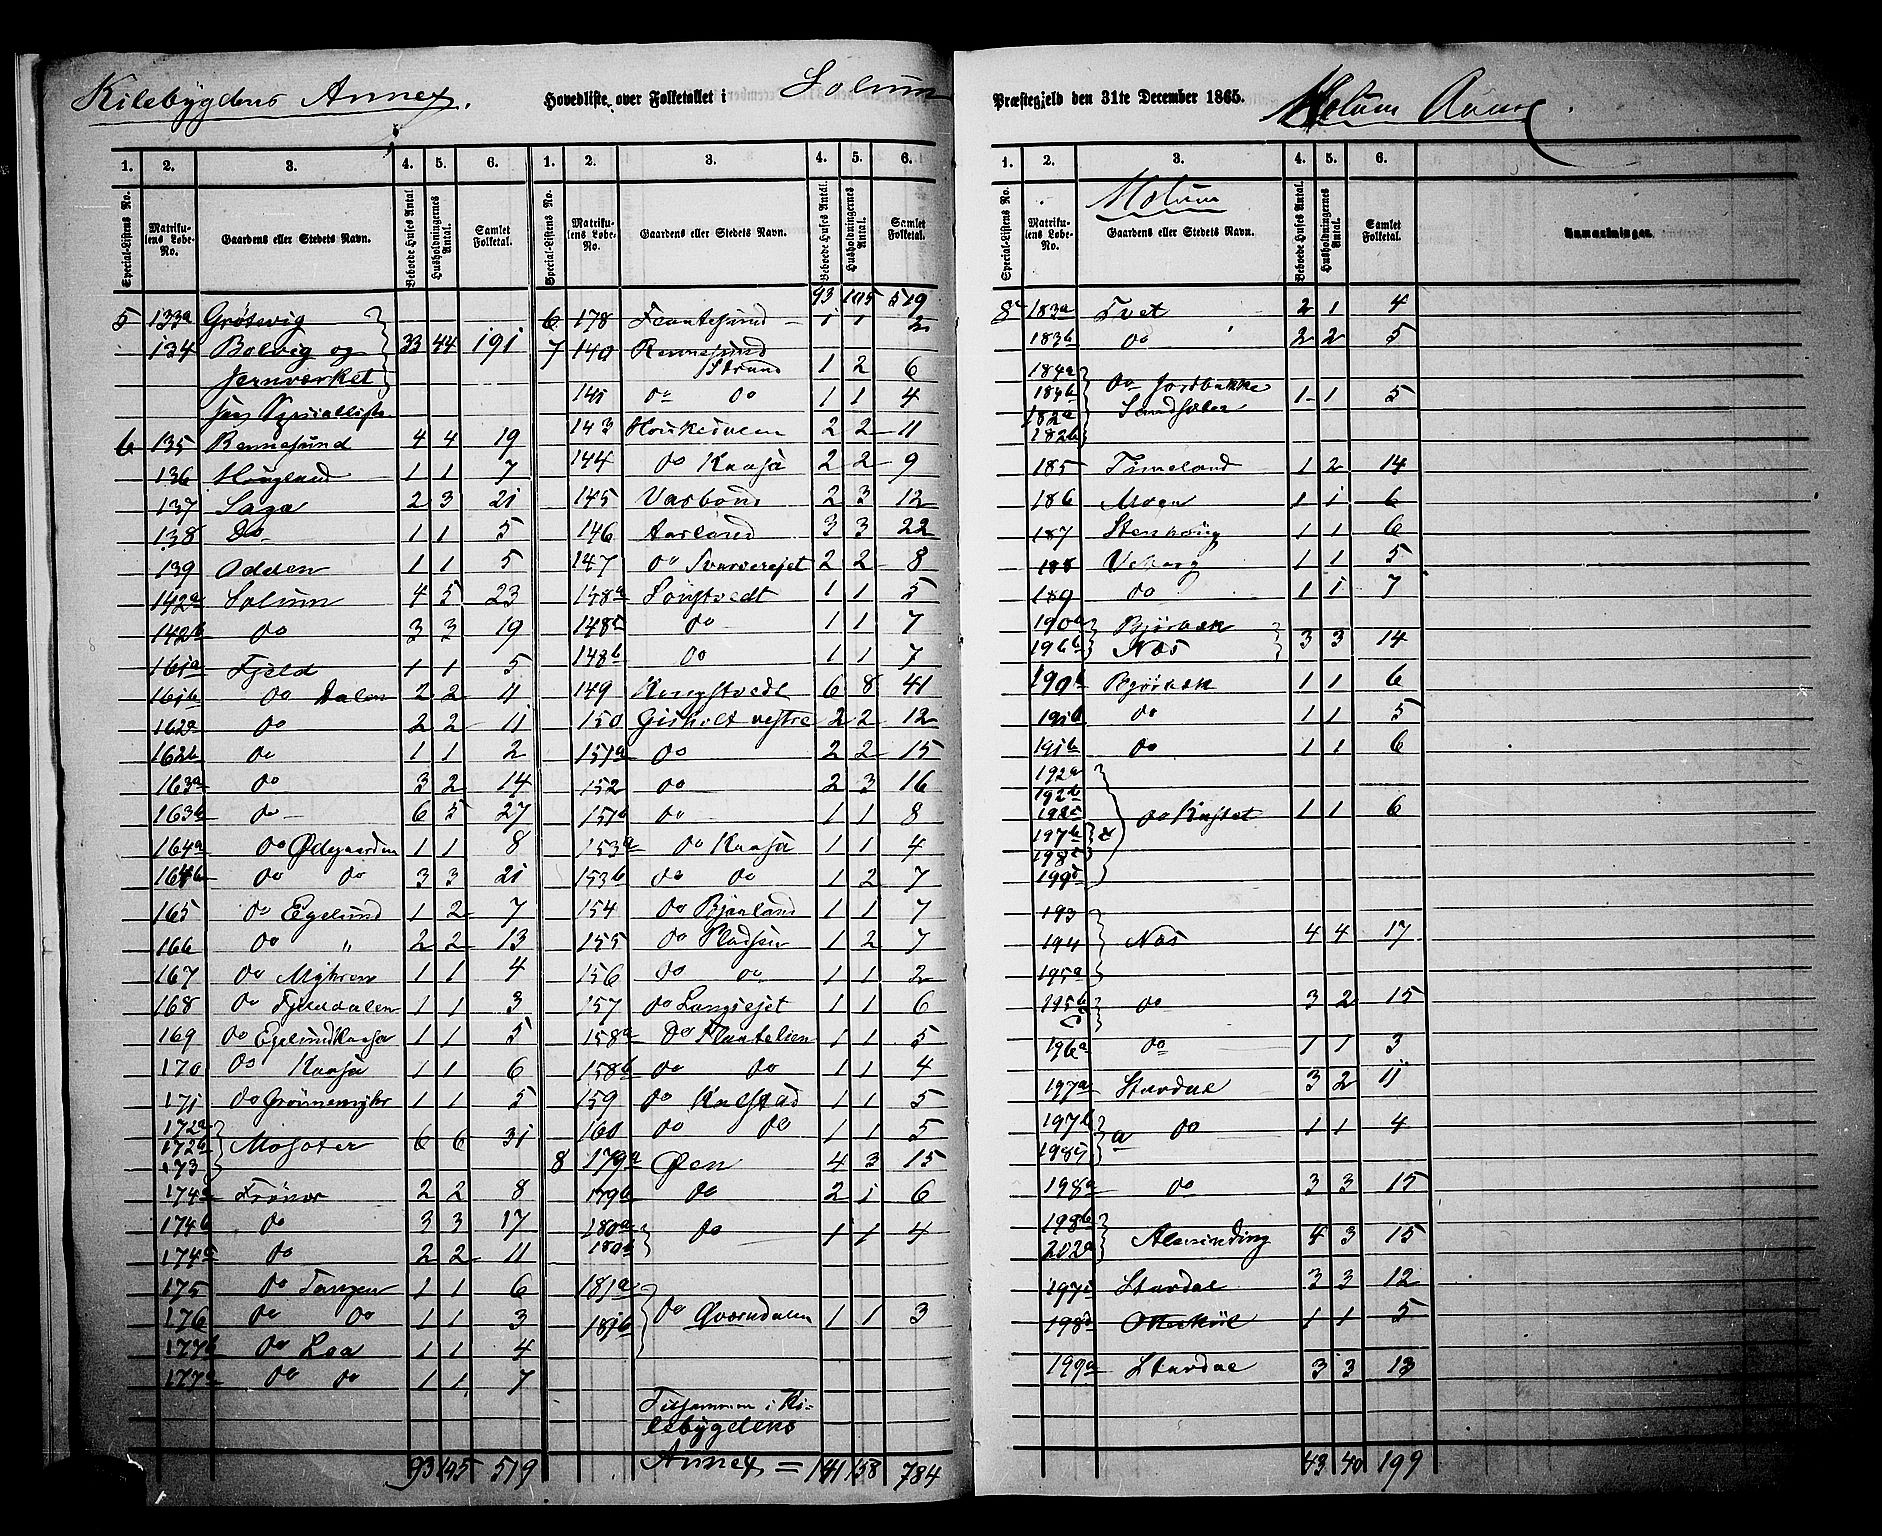 Kilebygdens Annex. Hovedliste over Folketallet i Solum Præstegjeld den 31te December 1865. Molum Annex
1. 2. 3. 4. 5. 6.
Special-Listens No. Matrikulens Løbe-No. Gaardens eller Stedets Navn. Beboede Huses Antal Husholdningernes Antal. Samlet Folketal.
5 133a Grösvig
134 Bolvig og 33 44 191
Jernværket
6 135 Rennesund 4 4 19
136 Haugland 1 1 7
137 Saga 2 3 21
138 Do 1 1 5
139 Odden 1 1 5
142a Solum 4 5 23
142b do 3 3 19
161a Fjeld 1 1 5
161b do Dalen 2 2 11
162a do 2 2 11
162b do 1 1 2
163a do 3 2 14
163b do 6 5 27
164a do Ødegaarden 1 1 8
164b do do 3 3 21
165 do Egelund 1 2 7
166 do " 2 2 13
167 do Myhren 1 1 4
168 do Fjelddalen 1 1 3
169 do Egelund Kaasa 1 1 5
170 do Kaasa 1 1 6
171 do Grönnemyhr 1 1 5
172a
172b Moholter 6 6 31
173
174a Frönes 2 2 8
174b do 3 3 17
174c do 2 2 11
175 do Tangen 1 1 6
176 do do 1 1 3
177b do Laa 1 1 4
177a do do 1 1 7
93 105 519
1. 2. 3. 4. 5. 6.
Special-Listens No. Matrikulens Løbe-No. Gaardens eller Stedets Navn. Beboede Huses Antal. Husholdningernes Antal. Samlet Folketal.
93 105 519
6 178 Flaatesund 1 1 2
7 140 Rennesund
Strand 1 2 6
141 do do 1 1 4
143 Houkedalen 2 2 11
144 do Kaasa 2 2 9
145 Vasbönd 2 3 12
146 Aarland 3 3 22
147 do Svarverejet 2 2 8
148a Löngtvedt 1 1 5
148c do 1 1 7
148b do 1 1 7
149 Ringstvedt 6 8 41
150 Gisholt vestre 2 2 12
151a do 2 2 15
152 do 2 3 16
151b do 1 1 8
153a do Kaasa 1 1 4
153b do do 1 2 7
154 do Bjaaland 1 1 7
155 do Pladsen 1 2 7
156 do do 1 1 2
157 do Langrejet 1 1 6
158a Do Flaatelien 1 1 5
158b do do 1 1 4
159 do Kalstad 1 1 5
160 do do 1 1 5
8 179a Øen 4 3 15
179b do 2 1 6
180a
180b do 1 1 4
181a
181b do Qværndalen 1 1 3
Tilsammen i Ki-
lebygdens
Annex = 141 158 784
1. 2. 3. 4. 5. 6.
Special-Listens No. Matrikulens Løbe-No. Gaardens eller Stedets Navn. Beboede Huses Antal. Husholdningernes Antal. Samlet Folketal. Anmærkninger.
Molum
8 183a Tvet 2 1 4
183b do 2 2 5
184a
184b do Jordbakke 1 1 5
182a
182b
185 Timeland 1 2 14
186 Moen 1 1 6
187 Stenhoug 1 1 6
188 Veberg 1 1 5
189 do 1 1 7
190a Bjørbæk
196b Næs 3 3 14
190b Bjørbæk 1 1 6
191b do 1 1 5
191b do 1 1 6
192a
192b
192c do Kastet 1 1 6
197b
198c
199c
193
194 Næs 4 4 17
195a
195b do 3 2 15
c
196a do 1 1 3
197a Stavdal 3 2 11
197b a do 1 1 4
198a do 3 3 15
198b
202a Almending 4 3 15
197c Stavdal 3 3 12
198d Otterkiil 1 1 5
199a Stavdal 3 3 13
43 40 199